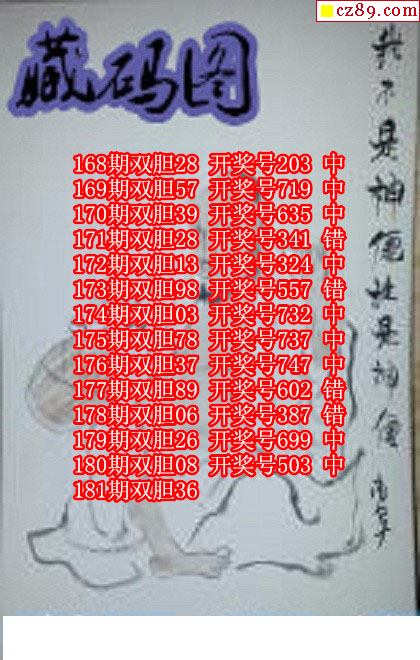 cz89.com
藏码图
168期双胆28 开奖号203 中
169期双胆57 开奖号719 中
170期双胆39 开奖号635 中
171期双胆28 开奖号341 错
172期双胆13 开奖号324 中
173期双胆98 开奖号557 错
174期双胆03 开奖号732 中
175期双胆78 开奖号737 中
176期双胆37 开奖号747 中
177期双胆89 开奖号602 错
178期双胆06 开奖号387 错
179期双胆26 开奖号699 中
180期双胆08 开奖号503 中
181期双胆36
我不是神仙 是神仙